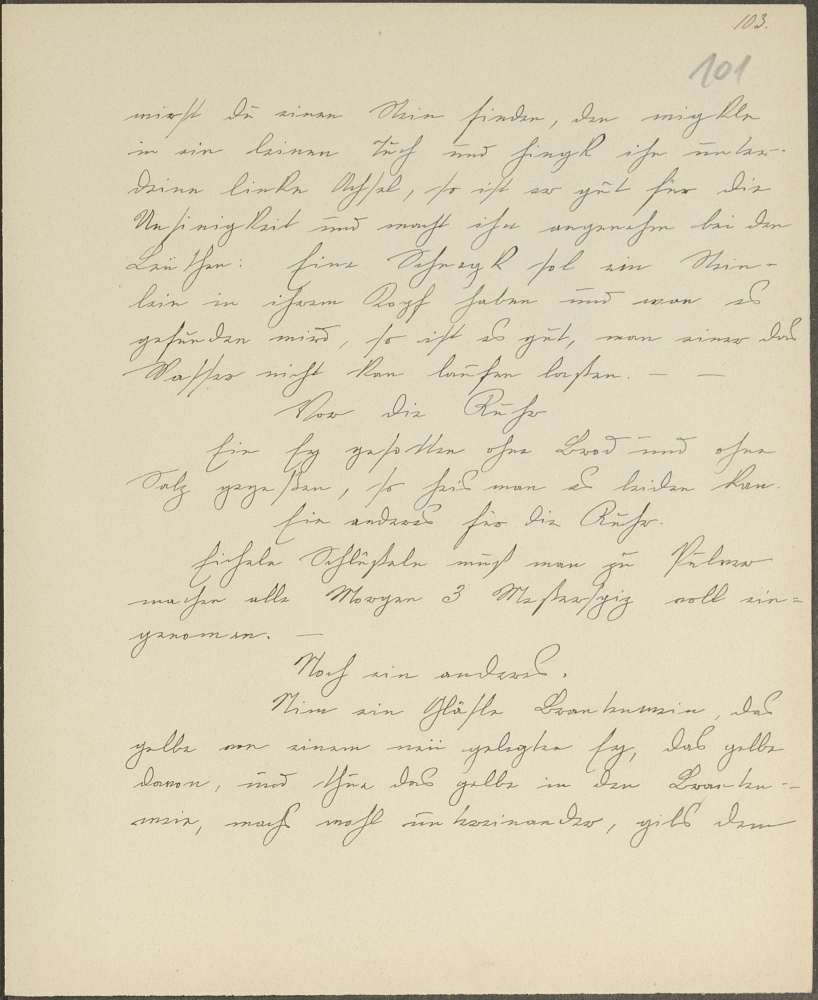 103.
101
wirst du einen Stein finden, den wigkle
in ein leinen Tuch und hingk ihn unter-
deine linke Achsel, so ist er gut für die
Unsinigkeit und macht ihn angenehm bei den
Leuthen: Eine Schnegk sol ein Stein-
lein in ihrem Kopf haben und wan es
gefunden wird, so ist es gut, wan einer das
Wasser nicht kan laufen laßen. — —
Vor die Ruhr
Ein Ey gesotten ohne Brod und ohne
Salz gegeßen, so heis man es leiden kan.
Ein anderes für die Ruhr.
Eicheln Schlüßeln muß man zu Pulver
machen alle Morgen 3 Meßerspiz voll ein=
genomen. —
Noch ein anderes.
Nim ein Gläsle Brantenwein, das
gelbe von einem neü gelegten Ey, das gelbe
davon, und thue das gelbe in den Branten-
wein, machs wohl untereinander, gibs dem